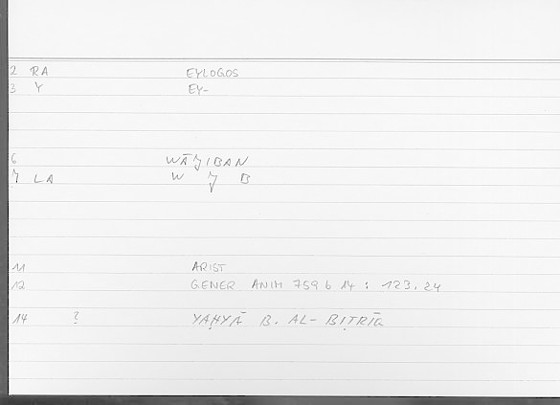 2 RA EYLOGOS
3 Y EY-
6 WĀJIBAN
7 LA W J B
11 ARIST
12 GENER ANIM 759 b 14 : 123.24
14 ? YAḤYĀ B. AL-BIṬRĪQ